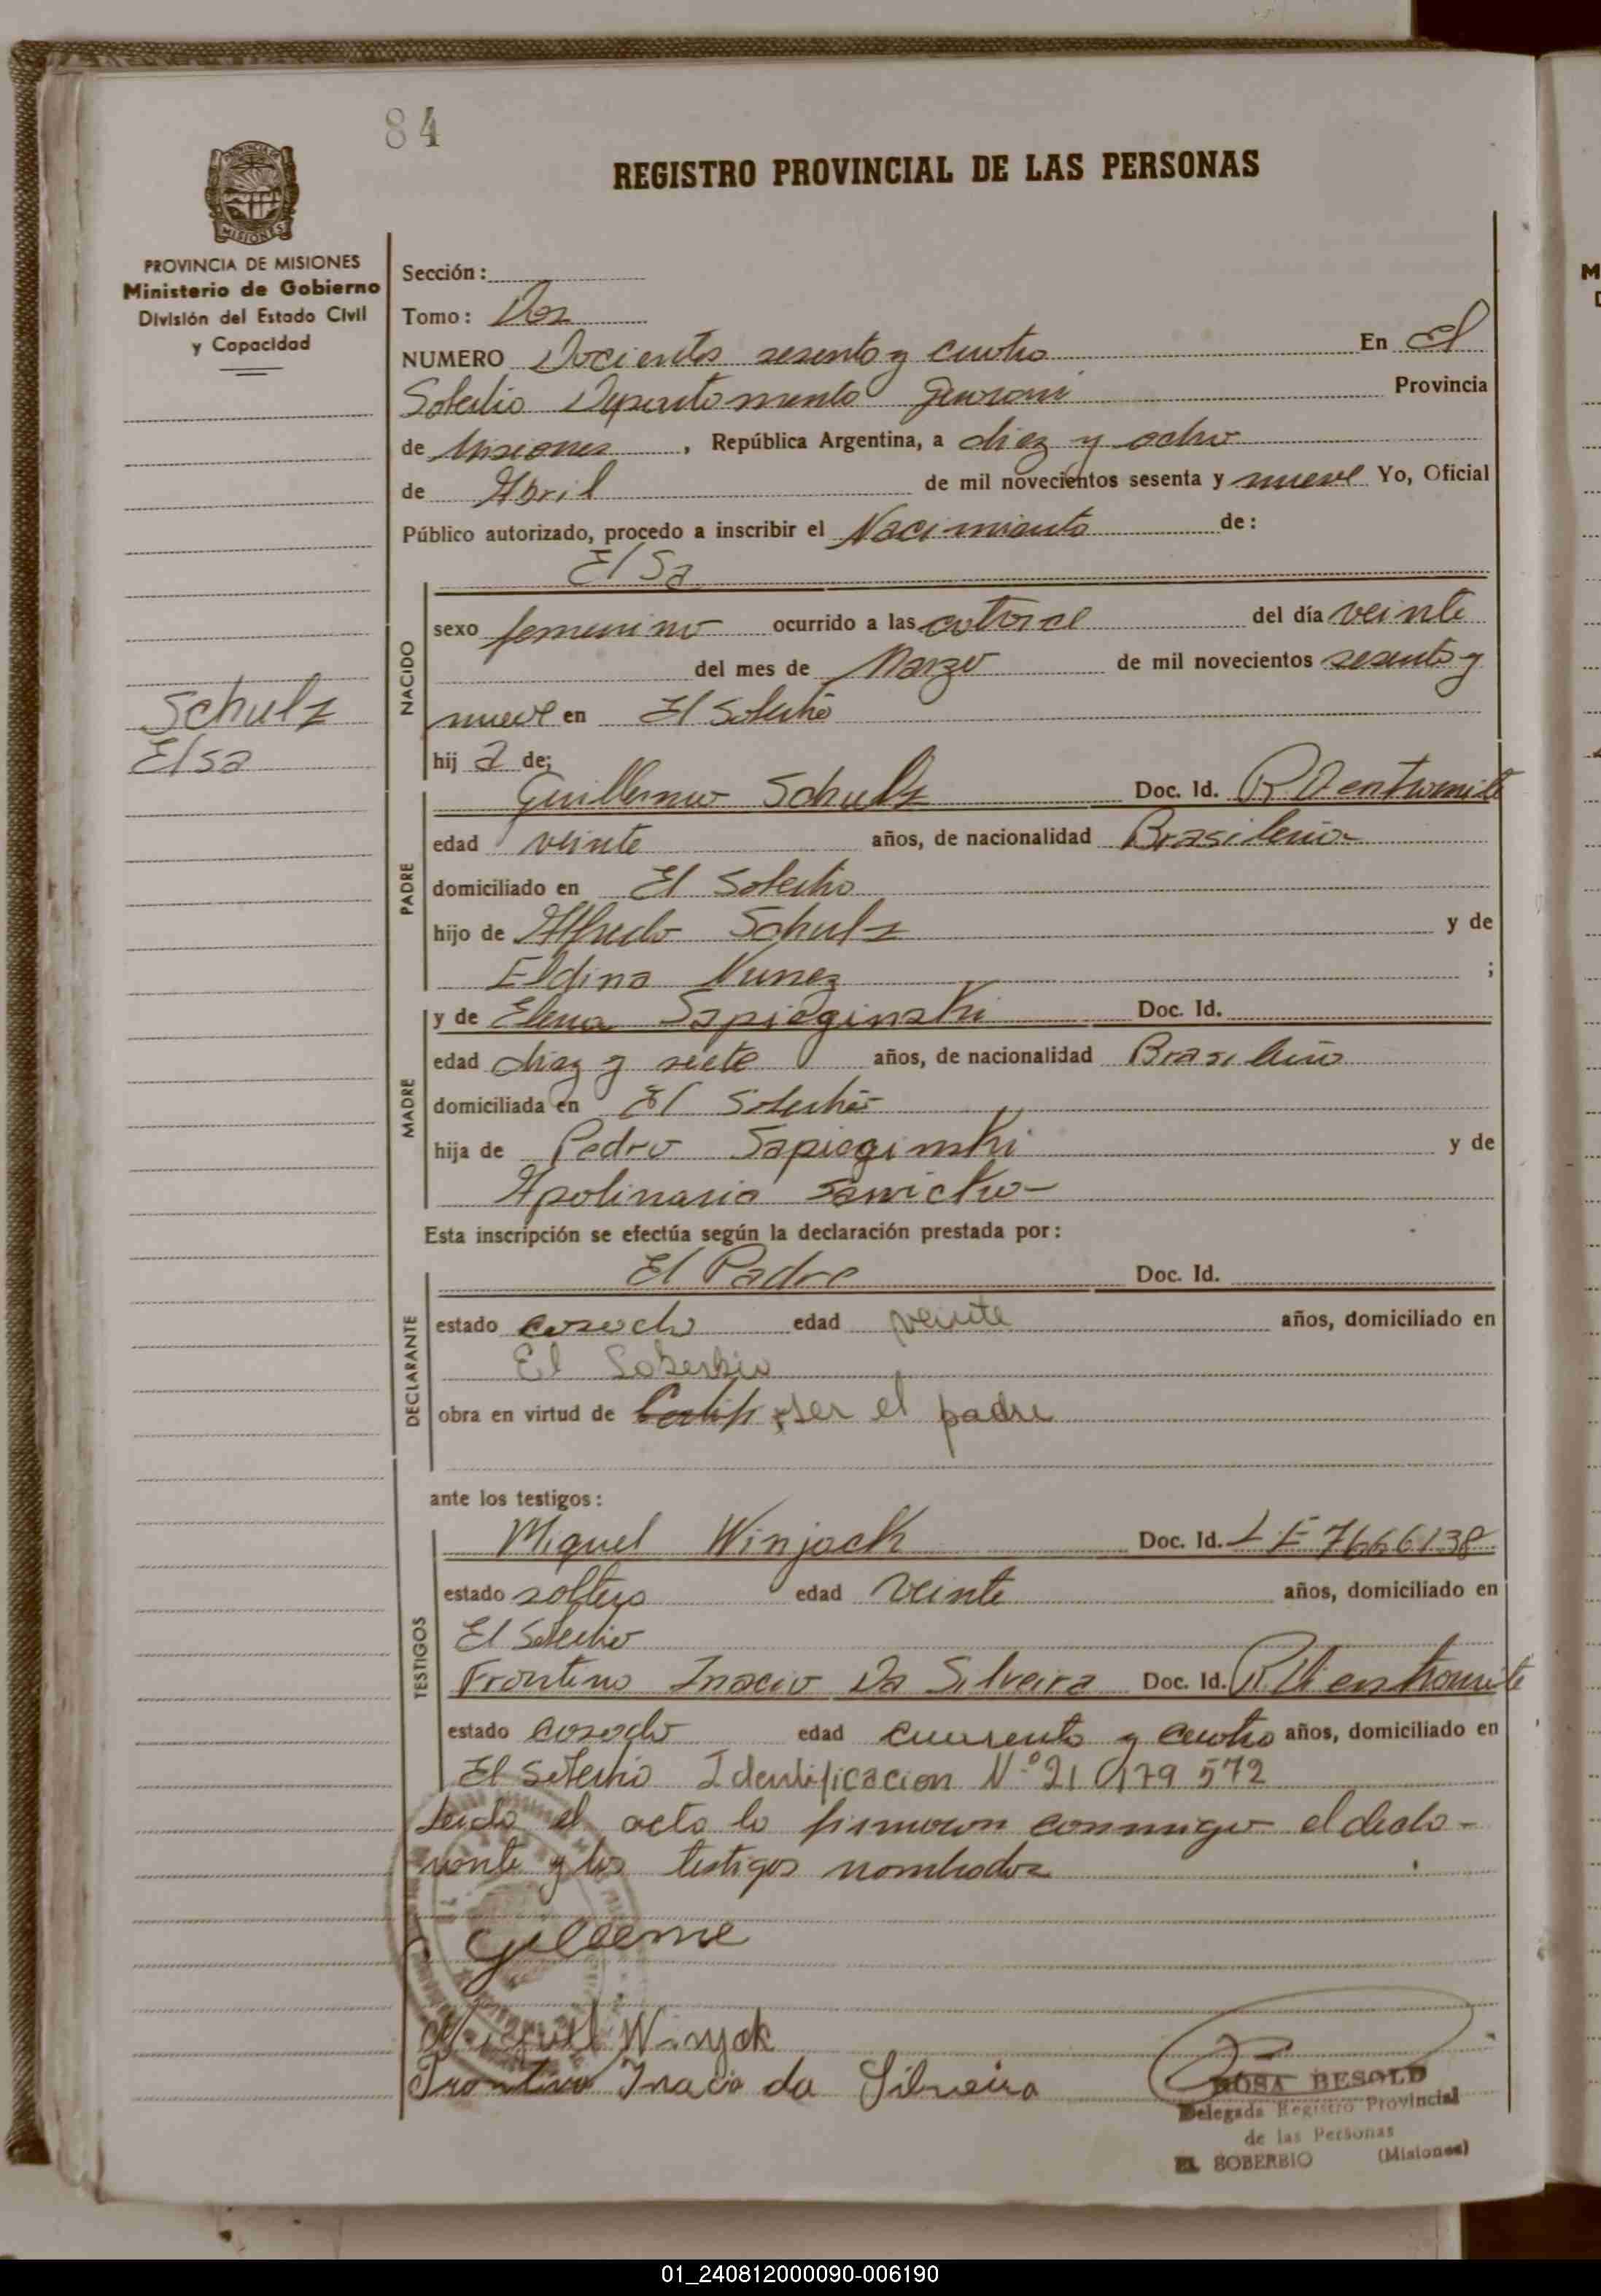 84
REGISTRO PROVINCIAL DE LAS PERSONAS
PROVINCIA DE MISIONES
Ministerio de Gobierno
División del Estado Civil
y Capacidad
Schulz
Elsa
Sección:
Tomo: Dos
NUMERO Docientos sesenta y cuatro En El
Soberbio Departamento Guarani Provincia
de Misiones, República Argentina, a diez y ocho
de Abril de mil novecientos sesenta y nueve Yo, Oficial
Público autorizado, procedo a inscribir el Nacimiento de:
Elsa
NACIDO
sexo femenino ocurrido a las catorce del día veinte
del mes de Marzo de mil novecientos sesenta y
nueve en El Soberbio
hija de;
PADRE
Guillermo Schulz Doc. Id.
edad veinte años, de nacionalidad Brasileña
domiciliado en El Soberbio
hijo de Alfredo Schulz y de
Eldina Nunez ;
MADRE
y de Elena Sapieginski Doc. Id.
edad diez y siete años, de nacionalidad Brasileña
domiciliada en El Soberbio
hija de Pedro Sapieginski y de
Apolinaria Sawicka
Esta inscripción se efectúa según la declaración prestada por:
DECLARANTE
El Padre Doc. Id.
estado casado edad veinte años, domiciliado en
El Soberbio
obra en virtud de ser el padre
ante los testigos:
TESTIGOS
Miguel Winjack Doc. Id. L E 7666138
estado soltero edad veinte años, domiciliado en
El Soberbio
Frontino Inacio Da Silveira Doc. Id.
estado casado edad cuarenta y cuatro años, domiciliado en
El Soberbio Identificacion Nº 210179 572
Leida el acta la firmaron conmigo el decla-
rante y los testigos nombrados
Gileeme
Miguel Winyak
Frontino Inacio da Silveira
ROSA BESOLD
Delegada Registro Provincial
de las Personas
EL SOBERBIO (Misiones)
01_240812000090-006190